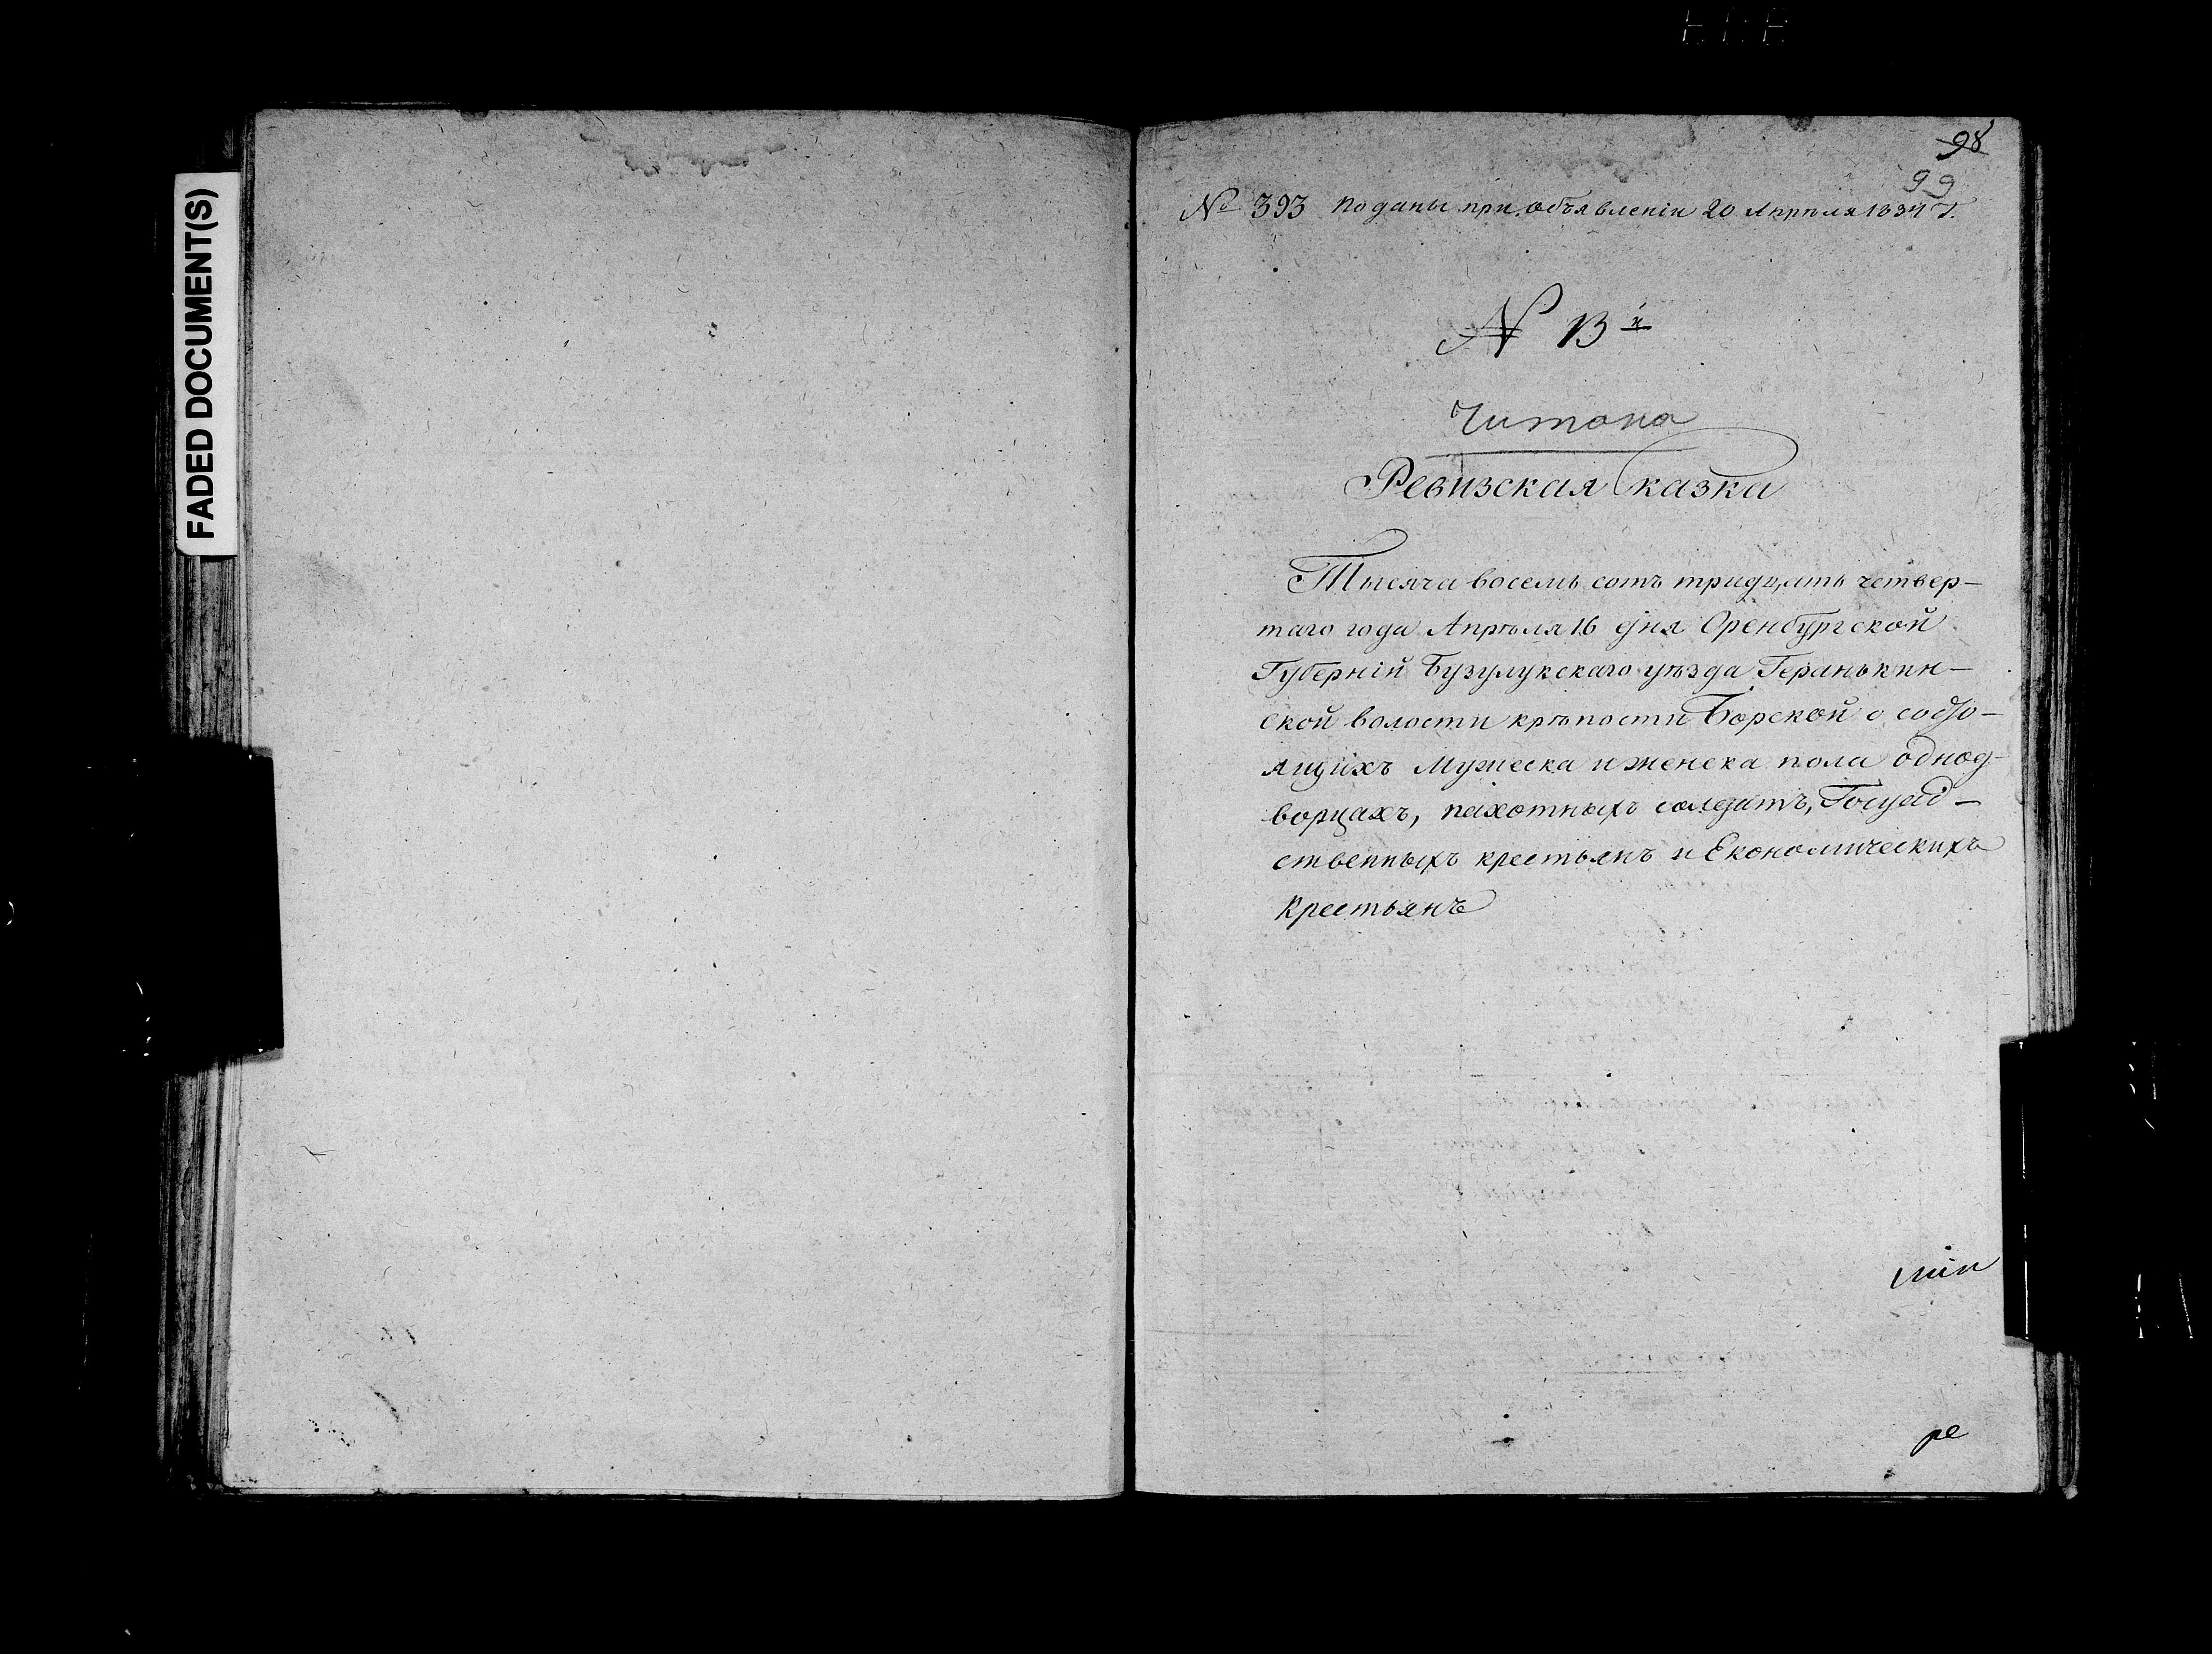 FADED DOCUMENT(S)
98
99
№ 393 поданы при объявленіи 20 Апрѣля 1834 Г.
N 13й
Читана
Ревизская Сказка
Тысяча восемь сотъ тридцать четвер-
таго года Апрѣля 16 дня Оренбургской
Губерній Бузулукскаго уѣзда Геранькин-
ской волости крѣпости Борской о состо-
ящихъ Мужеска и женска пола однод-
ворцахъ, пахотныхъ солдатъ, Государ-
ственныхъ крестьянъ и Економическихъ
Крестьянъ
ре